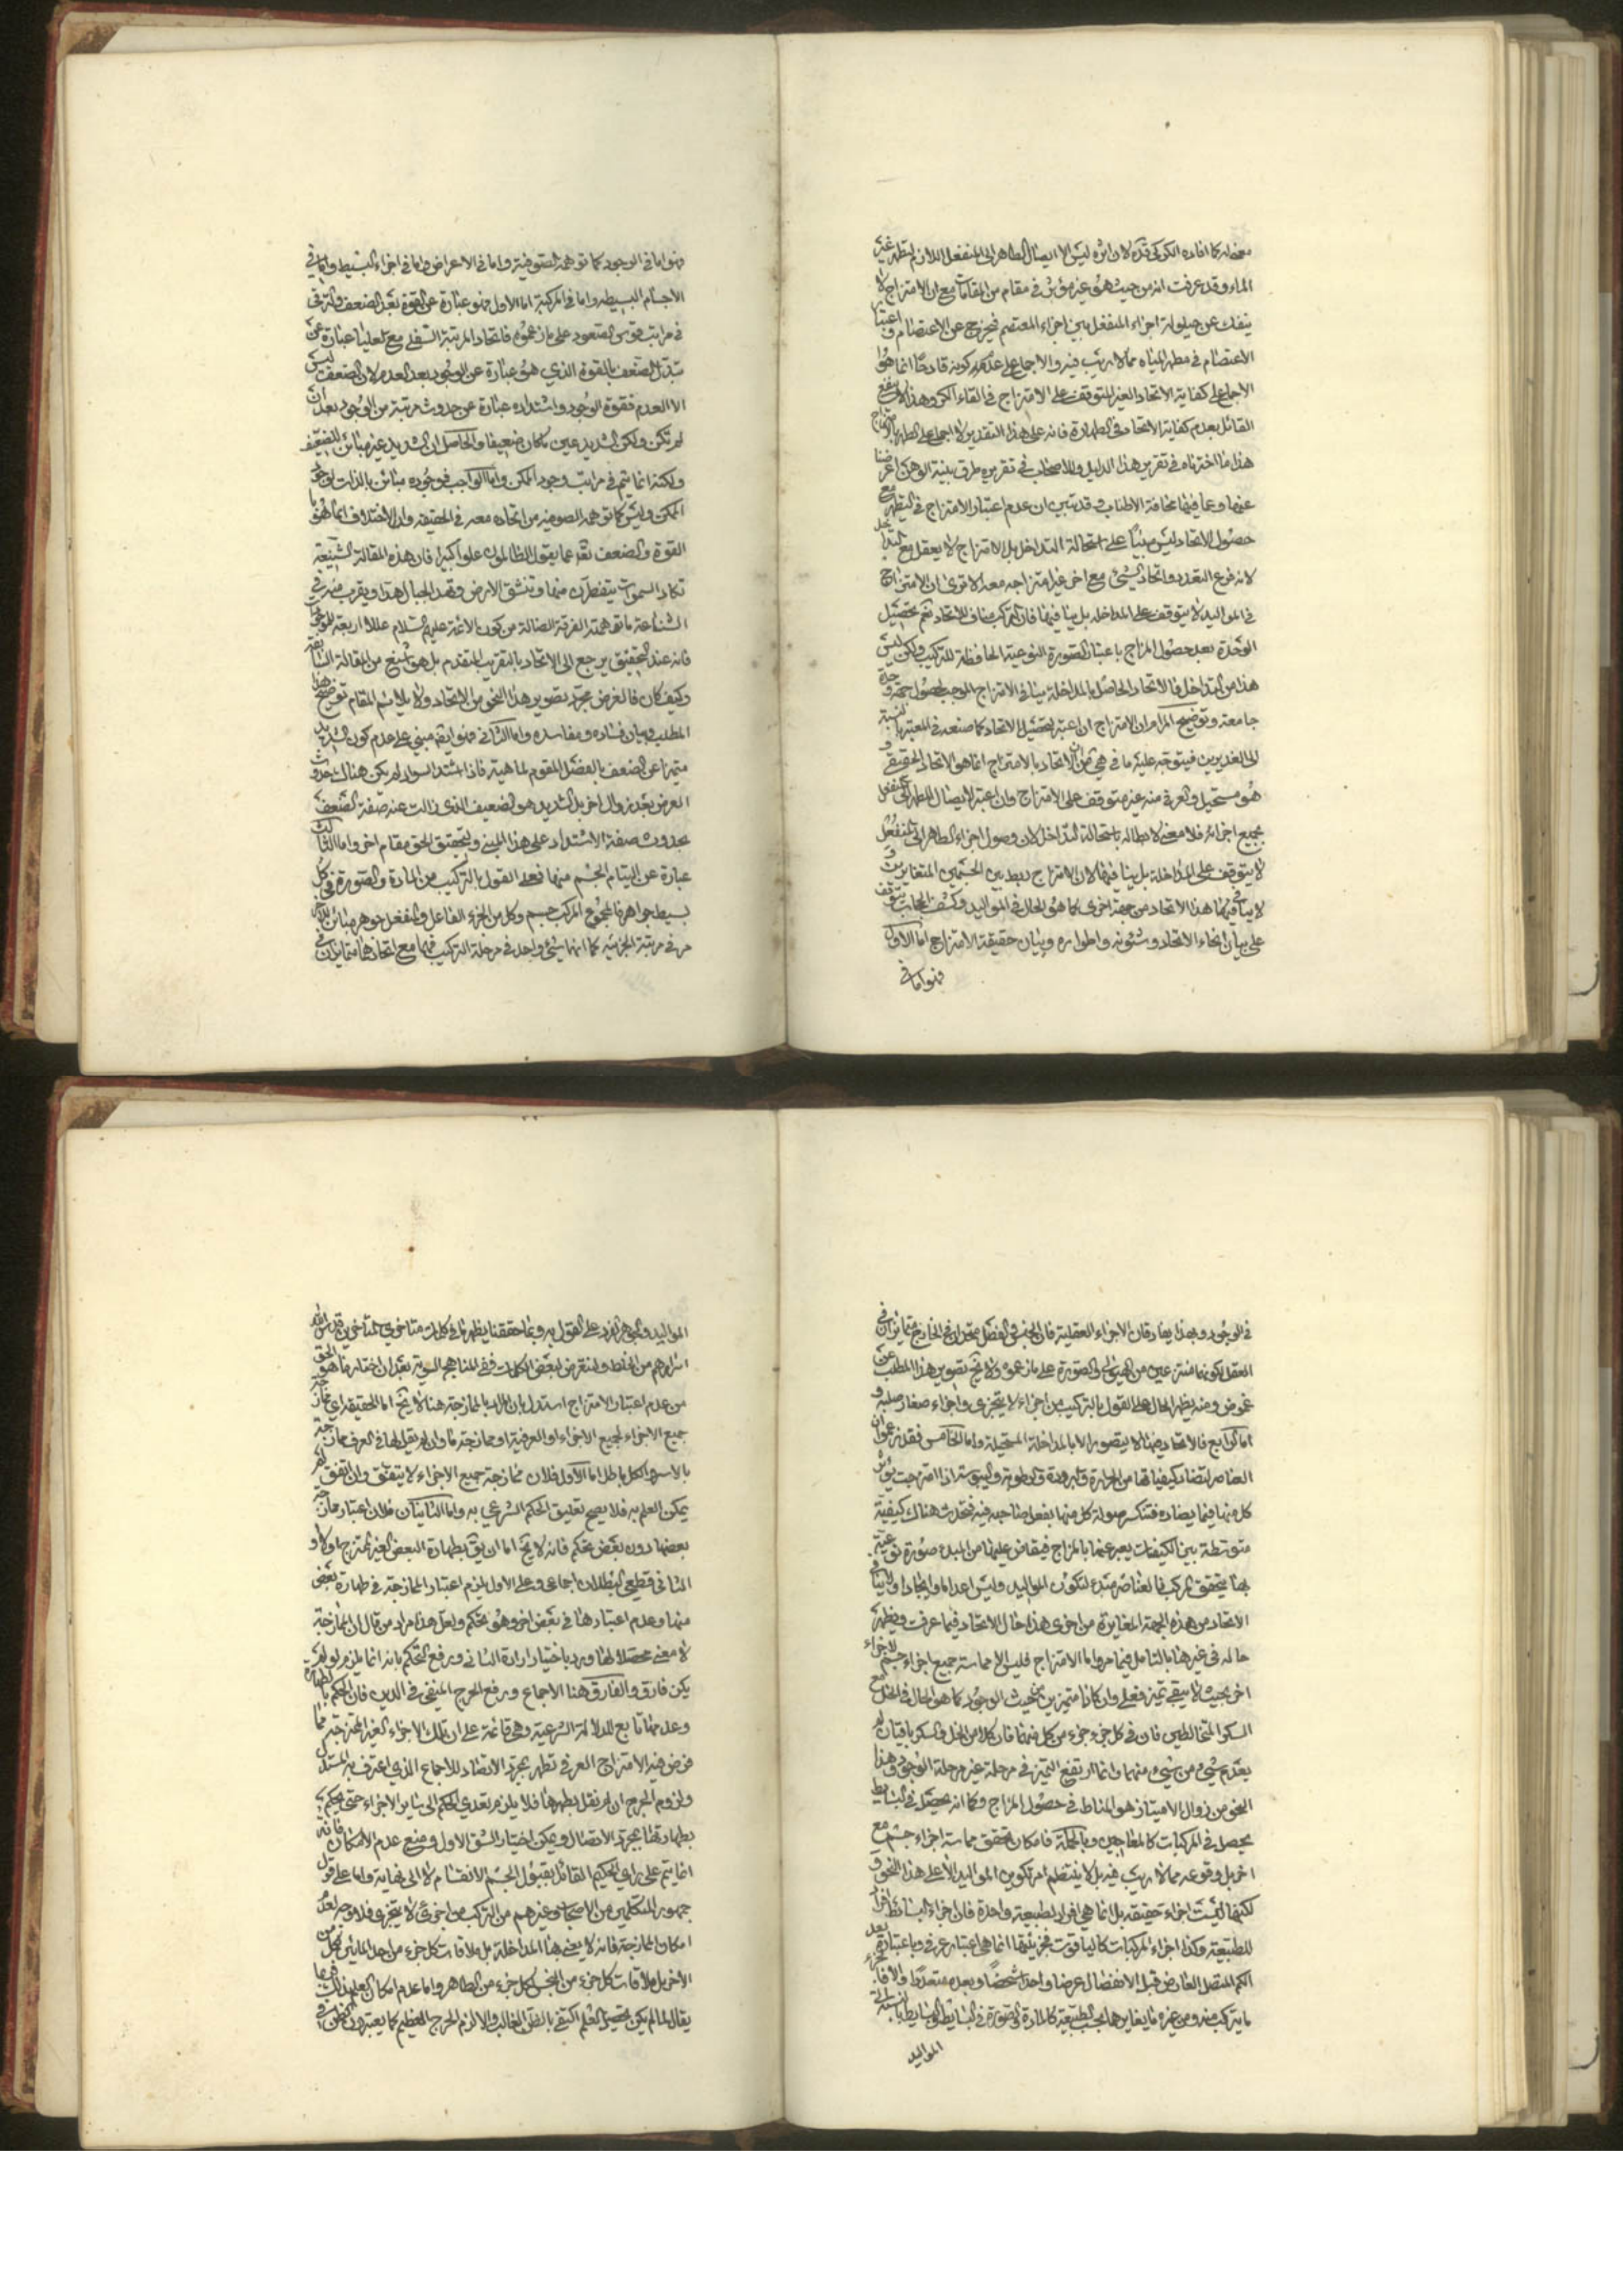 معضداً كما افاده الكركي قده لان اثره ليس الا ايصال الطاهر الى المنفعل اللازم لتطهر غير
الماء وقد عرفت انه من حيث هو غير مؤثر في مقام من المقامات مع ان الامتزاج لا
ينفك عن حيلولة اجزاء المنفعل بين اجزاء المعتصم فيخرج عن الاعتصام واعتبار
الاعتصام في مطهر المياه مما لا ريب فيه والاجماع على عدم كونه قادحاً انما هو
الاجماع على كفاية الاتحاد الغير المتوقف على الامتزاج في القاء الكر وهذا لا ينفع
القائل بعدم كفاية الاتحاد في الطهارة فانه على هذا التقدير لا اجماع على الطهر بالامتزاج
هذا ما اخترناه في تقرير هذا الدليل وللاصحاب في تقريره طرق بينة الوهن اعرضنا
عنها وعما فيها مخافة الاطناب وقد تبين ان عدم اعتبار الامتزاج في التطهر مع
حصول الاتحاد ليس مبنياً على استحالة التداخل بل الامتزاج لا يعقل مع التداخل
لانه فرع التعدد واتحاد الشئ مع اخر غير امتزاجه معه الا ترى ان الامتزاج
في المواليد لا يتوقف على المداخلة بل ينافيها فان التركب مناف للاتحاد نعم تحصيل
الوحدة بعد حصول المزاج باعتبار الصورة النوعية الحافظة للتركيب ولكن ليس
هذا من التداخل فالاتحاد الحاصل بالمداخلة ينافي الامتزاج الموجب لحصول جهة وحدة
جامعة وتوضيح المرام ان الامتزاج ان اعتبر لتحصيل الاتحاد كما صنعه في المعتبر بالنسبة
الى الغديرين فيتوجه عليه ما في هي من ان الاتحاد بالامتزاج انما هو الاتحاد الحقيقي و
هو مستحيل والعرفي منه غير متوقف على الامتزاج وان اعتبر لايصال المطهر الى المنفعل
بجميع اجزائه فلا معنى لابطاله باستحالة التداخل لان وصول اجزاء الطاهر الى المنفعل
لا يتوقف على المداخلة بل ينافيها لان الامتزاج ربط بين الجسمين المتغايرين و
لا ينافيهما هذا الاتحاد من جهة اخرى كما هو الحال في المواليد وكشف الحجاب يتوقف
على بيان انحاء الاتحاد وشئونه واطواره وبيان حقيقة الامتزاج اما الاول
فهو اما في
فهو اما في الوجود كما توهمه الصوفية واما في الاعراض واما في اجزاء البسيط واما في
الاجسام البسيطة واما في المركبة اما الاول فهو عبارة عن القوة بعد الضعف والترقي
في مراتب قوس الصعود على ما زعموه فاتحاد المرتبة السفلى مع العليا عبارة عن
تبدل الضعف بالقوة الذي هو عبارة عن الوجود بعد العدم لان الضعف ليس
الا العدم فقوة الوجود واشتداده عبارة عن حدوث مرتبة من الوجود بعد ان
لم تكن ولكن الشديد عين ما كان ضعيفا والحاصل ان الشديد غير مبائن للضعيف
ولكنه انما يتم في مراتب وجود الممكن واما الواجب فوجوده مبائن بالذات لوجود
الممكن وليس كما توهمه الصوفية من اتحاده معه في الحقيقة وان الاختلاف انما هو با
القوة والضعف تعالى عما يقول الظالمون علواً كبيرا فان هذه المقالة الشنيعة
تكاد السموات يتفطرن منها وتنشق الارض وتهد الجبال هدا ويقرب منه في
الشناعة ما توهمته الفرقة الضالة من كون الائمة عليهم السلام عللا اربعة للموجودات
فانه عند التحقيق يرجع الى الاتحاد بالتقريب المتقدم بل هو اشنع من المقالة السابقة
وكيف كان فالغرض مجرد تصوير هذا النحو من الاتحاد ولا يلايم المقام توضيح هذا
المطلب وبيان فساده ومفاسده واما الثاني فهو ايضا مبني على عدم كون الشديد
متميزا عن الضعيف بالفصل المقوم لماهيته فاذا اشتد السواد لم يكن هناك حدوث
العرض بعد زوال اخر بل الشديد هو الضعيف الذي زالت عنه صفة الضعف
بحدوث صفة الاشتداد على هذا المبنى ولتحقيق الحق مقام اخر واما الثالث
عبارة عن التيام الجسم منها فعلى القول بالتركيب من المادة والصورة في كل
بسيط جواهر فالمجموع المركب جسم وكل من الجزء الفاعل والمنفعل جوهر مبائن للاخر
مر في مرتبة الجزئية كما انهما شئ واحد في مرحلة التركيب فهما مع اتحادهما متمايزان في
في الوجود وبهذا يفارقان الاجزاء العقلية فان الجنس والفصل متحدان في الخارج متمايزان في
العقل لكونهما منتزعين من الهيولى والصورة على ما زعموه ولا يخ تصوير هذا المطلب عن
غموض ومنه يظهر الحال على القول بالتركيب من اجزاء لا يتجزى واجزاء صغار صلبة و
اما الرابع فالاتحاد هنا لا يتصور الا بالمداخلة المستحيلة واما الخامس فقد زعموا ان
العناصر لتضاد كيفياتها من الحرارة والبرودة والرطوبة واليبوسة اذا امتزجت يؤثر
كل منها فيما يضاده فتنكسر صولة كل منها بفعل صاحبه فيه فتحدث هناك كيفية
متوسطة بين الكيفيات يعبر عنها بالمزاج فيفاض عليها من المبدء صورة نوعية
بها يتحقق المركب فالعناصر مبتدء لتكون المواليد وليس اعداما وايجادا ولا ينافي
الاتحاد من هذه الجهة المغايرة من اخرى هذا حال الاتحاد فيما عرفت ويظهر
حاله في غيرها بالتامل فيما مر واما الامتزاج فليس الا مماسة جميع اجزاء جسم لاجزاء
اخر بحيث لا يبقى تميز فعلي وان كانا متميزين من حيث الوجود كما هو الحال في الخل مع
السكر المتخالطين فان في كل جزء جزء من كل منهما فان كلا من الخل والسكر باقيان لم
يعدم شئ من شئ منهما وانما ارتفع التميز في مرحلة غير مرحلة الوجود وهذا
النحو من زوال الامتياز هو المناط في حصول المزاج وكما انه يحصل في البسائط
يحصل في المركبات كالمعاجين وبالجملة فامكان تحقق مماسة اجزاء جسم مع
اخر بل وقوعه مما لا ريب فيه بل لا ينتظم امر تكوين المواليد الا على هذا النحو و
لكنها ليست اجزاء حقيقة بل انما هي افراد لطبيعة واحدة فان اجزاء البسائط افراد
للطبيعة وكذا اجزاء المركبات كالياقوت فجزئيتها انما هي اعتبار عرفي وباعتبار بعد
الكم المتصل العارض قبل الانفصال عرضا واحدا شخصاً وبعده متعددا والا فالجزء
ما يتركب منه ومن غيره ما يغايرها بحسب الطبيعة كالمادة والصورة في البسائط والبسايط بالنسبة الى
المواليد
المواليد والجوهر الفرد على القول به وبما حققنا يظهر ما في كلمات متاخري المتاخرين قدس الله
اسرارهم من الخلط ولنتعرض لبعض الكلمات ففي المناهج السوية بعد ان اختار ما هو الحق
من عدم اعتبار الامتزاج استدل بان المراد بالممازجة هنا لا يخ اما الحقيقة اي ممازجة
جميع الاجزاء لجميع الاجزاء او العرفية او ممازجة ما وان لم يقل لها في العرف ممازجة
بالاسر والكل باطل اما الاول فلان ممازجة جميع الاجزاء لا يتفق وان اتفق لم
يمكن العلم به فلا يصح تعليق الحكم الشرعي به واما الثانيان فلان اعتبار ممازجة
بعضها دون بعض تحكم فانه لا يخ اما ان يق بطهارة البعض الغير الممتزج اولا و
الثاني قطعي البطلان اجماعي وعلى الاول يلزم اعتبار الممازجة في طهارة بعض
منها وعدم اعتبارها في بعض اخر وهو تحكم ولعل هذا مراد من قال ان الممازجة
لا معنى محصلا لها ويرد باختيار ارادة الثاني ويرفع التحكم بانه انما يلزم لو لم
يكن فارق والفارق هنا الاجماع ويرفع الحرج المنفي في الدين فان الحكم بالطهارة
وعدمها تابع للدلالة الشرعية وهي قائمة على ان تلك الاجزاء الغير الممتزجة مما
فرض فيه الامتزاج العرفي تطهر بمجرد الاتصال للاجماع الذي اعترف به المستدل
ولزوم الحرج ان لم نقل بطهرها فلا يلزم تعدي الحكم الى ساير الاجزاء حتى يحكم
بطهارتها بمجرد الاتصال ويمكن اختيار الشق الاول ومنع عدم الامكان فانه
انما يتم على راي الحكيم القائل بقبول الجسم الانقسام لا الى نهاية واما على قول
جمهور المتكلمين من الاصحاب وغيرهم من التركب من اجزاء لا يتجزى فلا وجه لعدم
امكان الممازجة فانه لا يعنى بها المداخلة بل ملاقات كل جزء من احد المايين لكل من
الاخر بل ملاقات كل جزء من النجس لكل جزء من الطاهر واما عدم امكان العلم بذلك فربما
يقال لما لم يكن تحصيل العلم اكتفي بالظن الغالب والا لزم الحرج العظيم كما يعتبرون الظن في